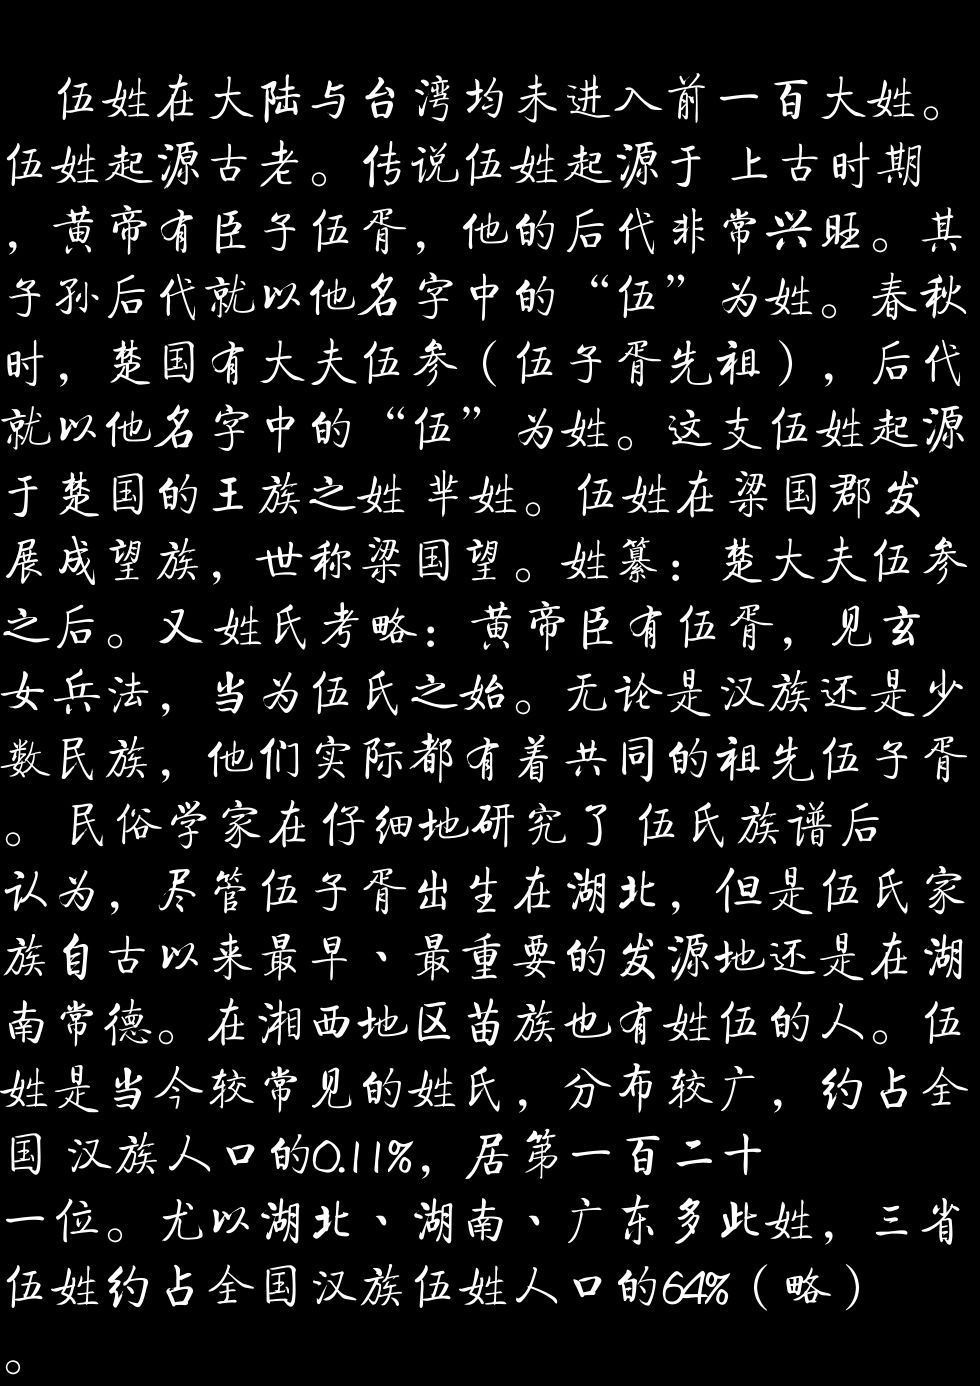 伍姓在大陆与台湾均未进入前一百大姓。
伍姓起源古老。传说伍姓起源于 上古时期
，黄帝有臣子伍胥，他的后代非常兴旺。其
子孙后代就以他名字中的“伍”为姓。春秋
时，楚国有大夫伍参（伍子胥先祖），后代
就以他名字中的“伍”为姓。这支伍姓起源
于楚国的王族之姓 芈姓。伍姓在梁国郡发
展成望族，世称梁国望。姓纂：楚大夫伍参
之后。又姓氏考略：黄帝臣有伍胥，见玄
女兵法，当为伍氏之始。无论是汉族还是少
数民族，他们实际都有着共同的祖先伍子胥
。民俗学家在仔细地研究了 伍氏族谱后
认为，尽管伍子胥出生在湖北，但是伍氏家
族自古以来最早、最重要的发源地还是在湖
南常德。在湘西地区苗族也有姓伍的人。伍
姓是当今较常见的姓氏，分布较广，约占全
国 汉族人口的0.11%，居第一百二十
一位。尤以湖北、湖南、广东多此姓，三省
伍姓约占全国汉族伍姓人口的64%（略）
。